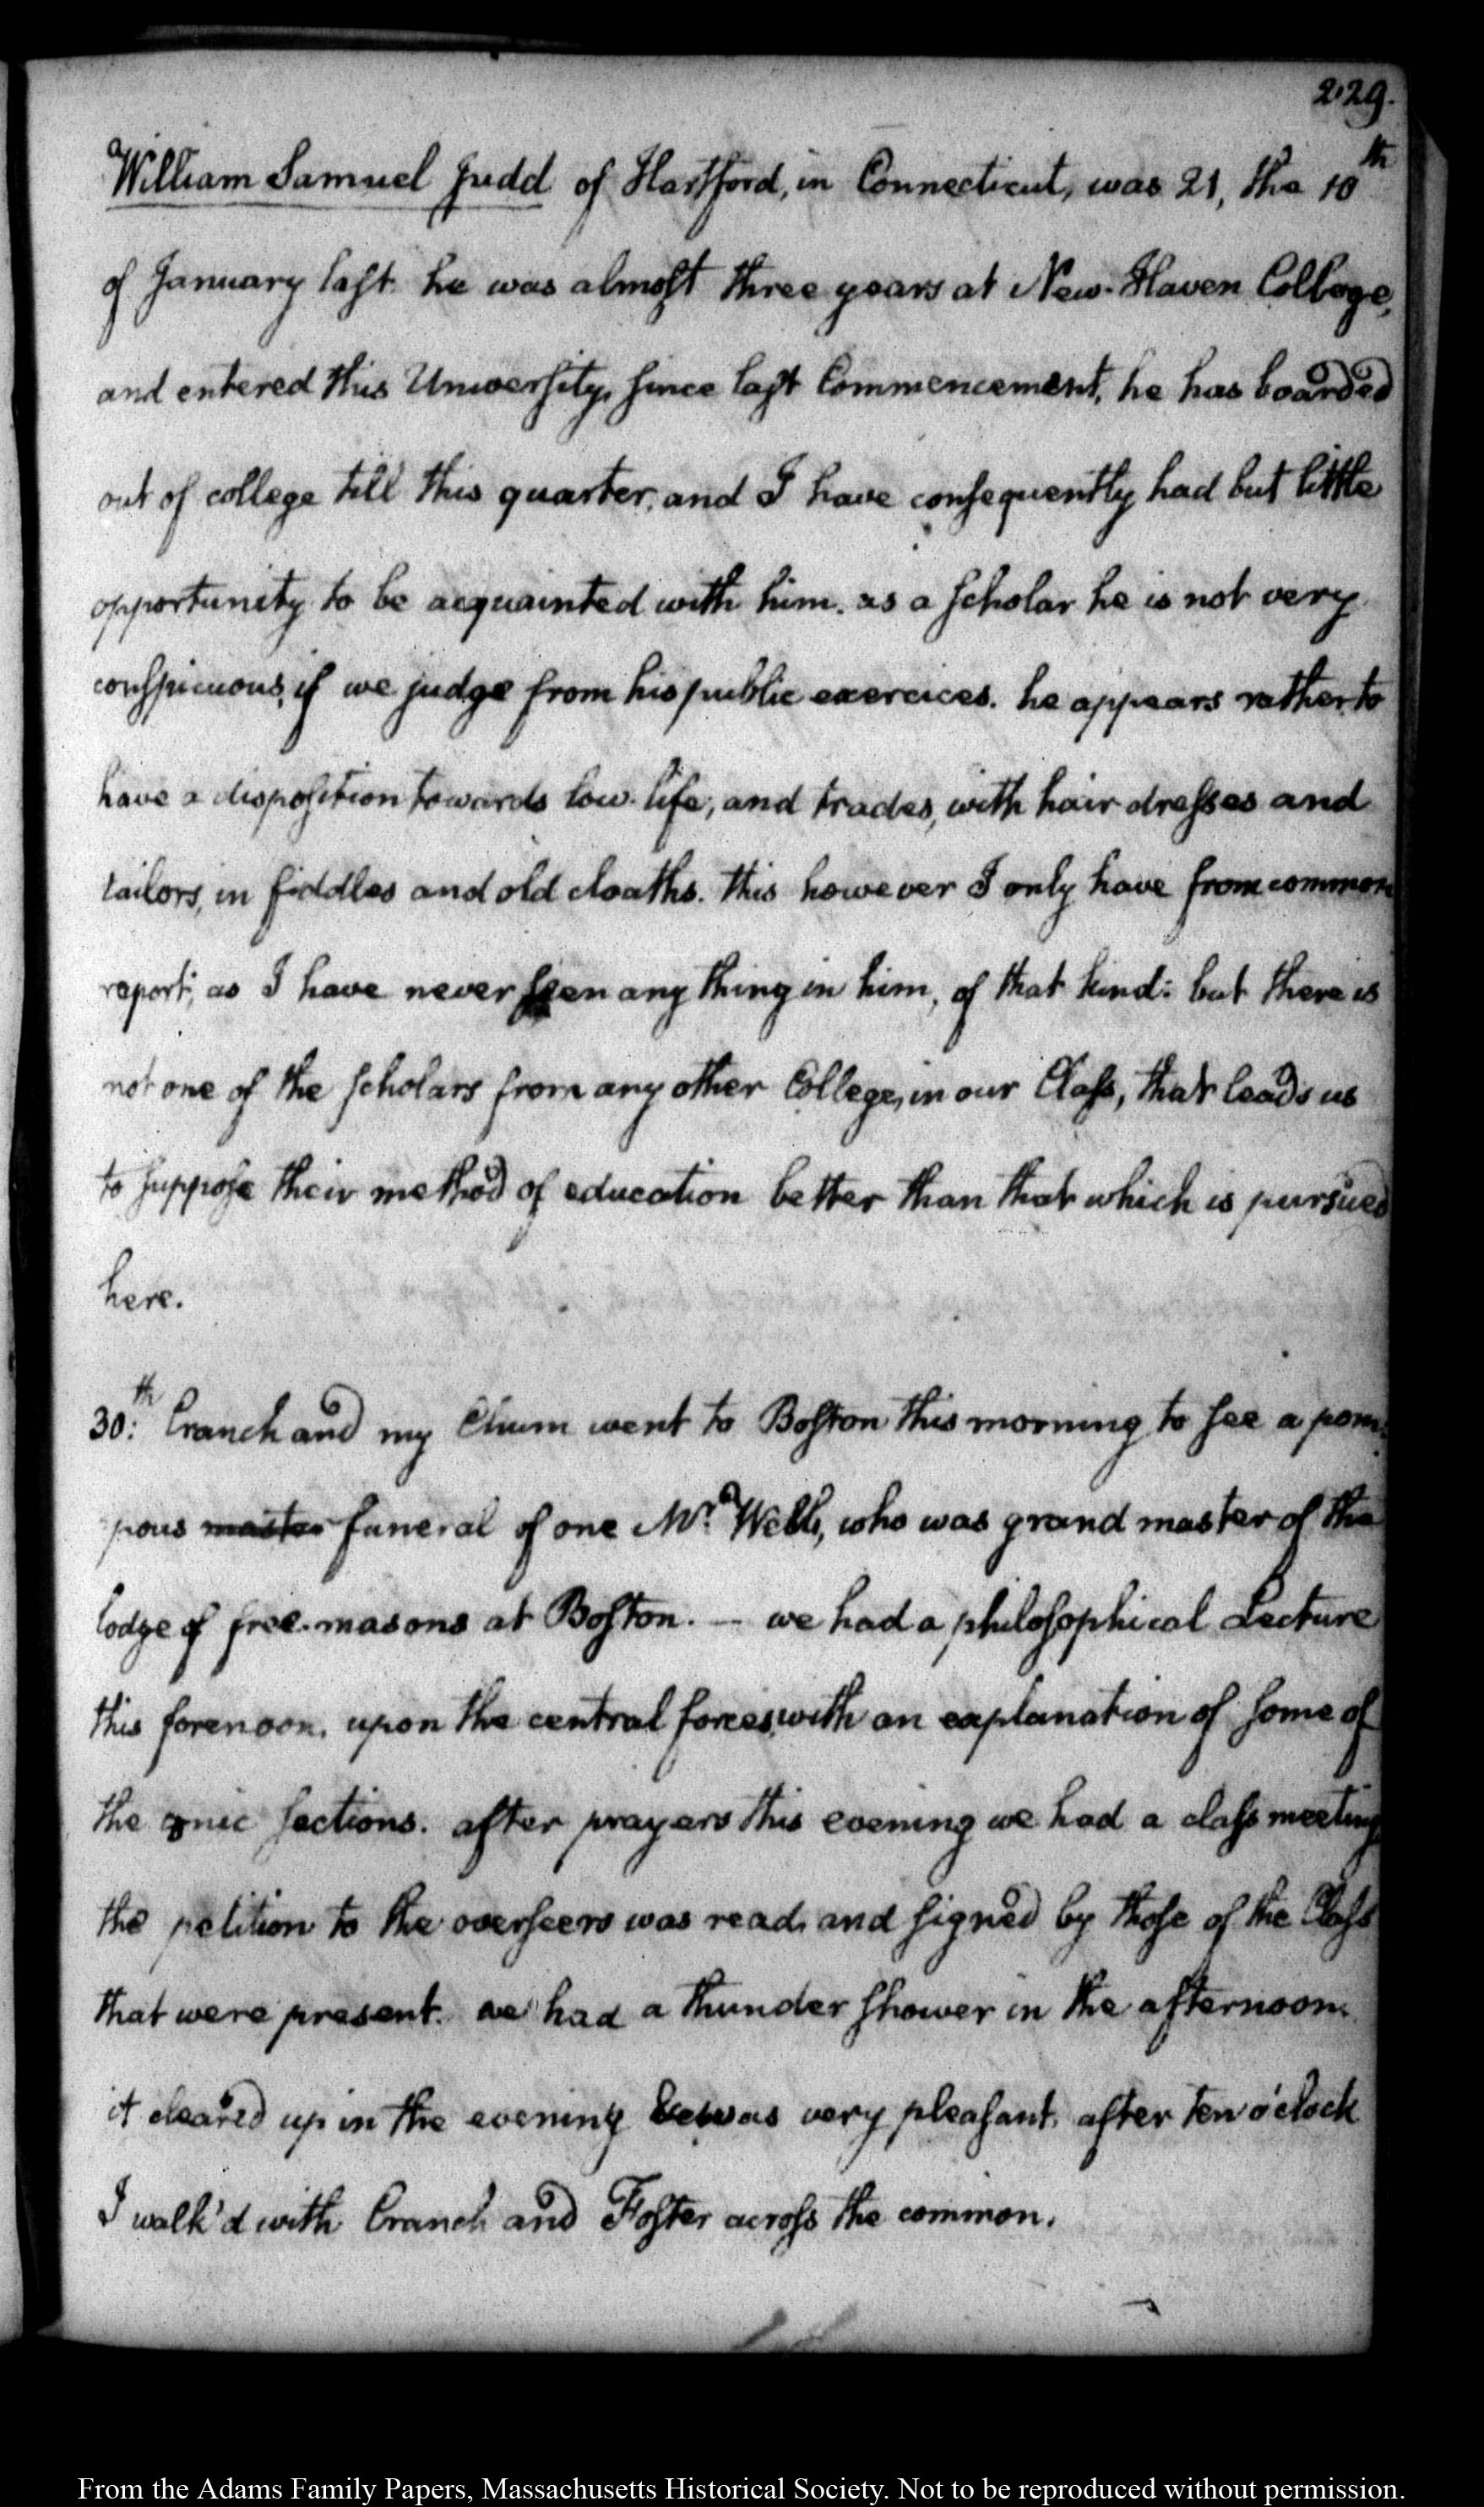 229.
William Samuel Judd of Hartford, in Connecticut, was 21, the 10th
of January last. he was almost three years at New-Haven College,
and entered this University, since last Commencement, he has boarded
out of college till this quarter, and I have consequently had but little
opportunity to be acquainted with him. as a scholar he is not very
conspicuous, if we judge from his public exercices. he appears rather to
have a disposition towards low-life, and trades, with hair dresses and
tailors, in fiddles and old cloaths. this however I only have from common
report; as I have never seen any thing in him, of that kind: but there is
not one of the scholars from any other College, in our Class, that leads us
to suppose their method of education better than that which is pursued
here.
30:th Cranch and my Chum went to Boston this morning to see a pom-
pous master funeral of one Mr. Webb, who was grand master of the
lodge of free-masons at Boston. — we had a philosophical Lecture
this forenoon, upon the central forces, with an explanation of some of
the conic sections. after prayers this evening we had a class meeting
the petition to the overseers was read, and signed by those of the Class
that were present. we had a thunder shower in the afternoon.
it cleared up in the evening & was very pleasant. after ten o'clock
I walk'd with Cranch and Foster across the common.
From the Adams Family Papers, Massachusetts Historical Society. Not to be reproduced without permission.